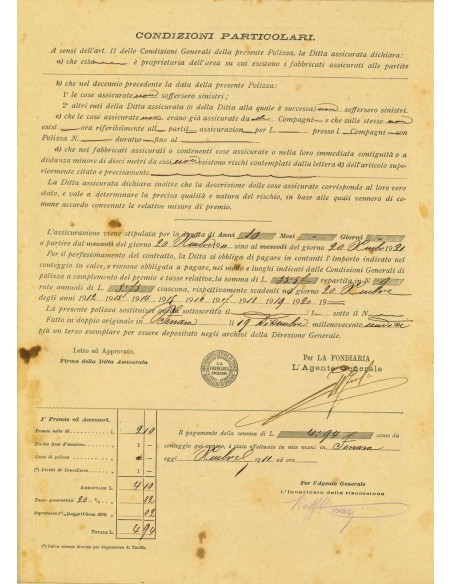 CONDIZIONI PARTICOLARI.
A sensi dell'art. 11 delle Condizioni Generali della presente Polizza, la Ditta assicurata dichiara:
a) che essa è proprietaria dell'area su cui esistono i fabbricati assicurati alle partite
b) che nel decennio precedente la data della presente Polizza:
1° le cose assicurate non soffersero sinistri;
2° altri enti della Ditta assicurata (o della Ditta alla quale è successa) non soffersero sinistri.
c) che le cose assicurate non erano già assicurate da Compagni e che sulle stesse non
esist ora riferibilmente all partit assicurazion per L presso l Compagni con
Polizza N. duratur fino al
d) che nei fabbricati assicurati o contenenti cose assicurate o nella loro immediata contiguità o a
distanza minore di dieci metri da esse non esistono rischi contemplati dalla lettera d) dell'articolo su-
periormente citato e precisamente
La Ditta assicurata dichiara inoltre che la descrizione delle cose assicurate corrisponde al loro vero
stato, e vale a determinare la precisa qualità e natura del rischio, in base alle quali vennero di co-
mune accordo convenute le relative misure di premio.
L'assicurazione viene stipulata per la durata di Anni 10 Mesi - Giorni
a partire dal mezzodì del giorno 20 Xmbre 1911 sino al mezzodì del giorno 20 Xmbre 1921
Per il perfezionamento del contratto, la Ditta si obbliga di pagare in contanti l'importo indicato nel
conteggio in calce, e rimane obbligata a pagare, nel modo e luoghi indicati dalle Condizioni Generali di
polizza a complemento del premio a tosse relative, la somma di L. repartita in N. 9
rate annuali di L. ciascuna, rispettivamente scadenti il giorno 20 Xmbre
degli anni 1912 1913 1914 1915 1916 1917 1918 1919 1920 19
La presente polizza sostituisce quella sottoscritta il sotto il N.
Fatto in doppio originale in Ferrara li 19 Dicembre millenovecento undici
più un terzo esemplare per essere depositato negli archivi della Direzione Generale.
Letto ed Approvato.
Firma della Ditta Assicurata
LA FONDIARIA INCENDIO
Per LA FONDIARIA
L'Agente Generale
1° Premio ed Accessori.
Premio netto di L. 2 10
Diritto fisso d'esazione 1 -
Costo di polizza 1 -
(*) Diritto di Cancelleria 1 -
Ammontare L. 4 10
Tassa governativa 20 % 82
Sopratassa 02
Totale L. 4 94
(*) Salvo misura diversa per disposizione di Tariffa.
Il pagamento della somma di L. 4.94 come da
conteggio qui contro, è stato effettuato in mie mani in Ferrara
oggi Xmbre 1911 ad ore
Per l'Agente Generale
L'Incaricato della riscossione